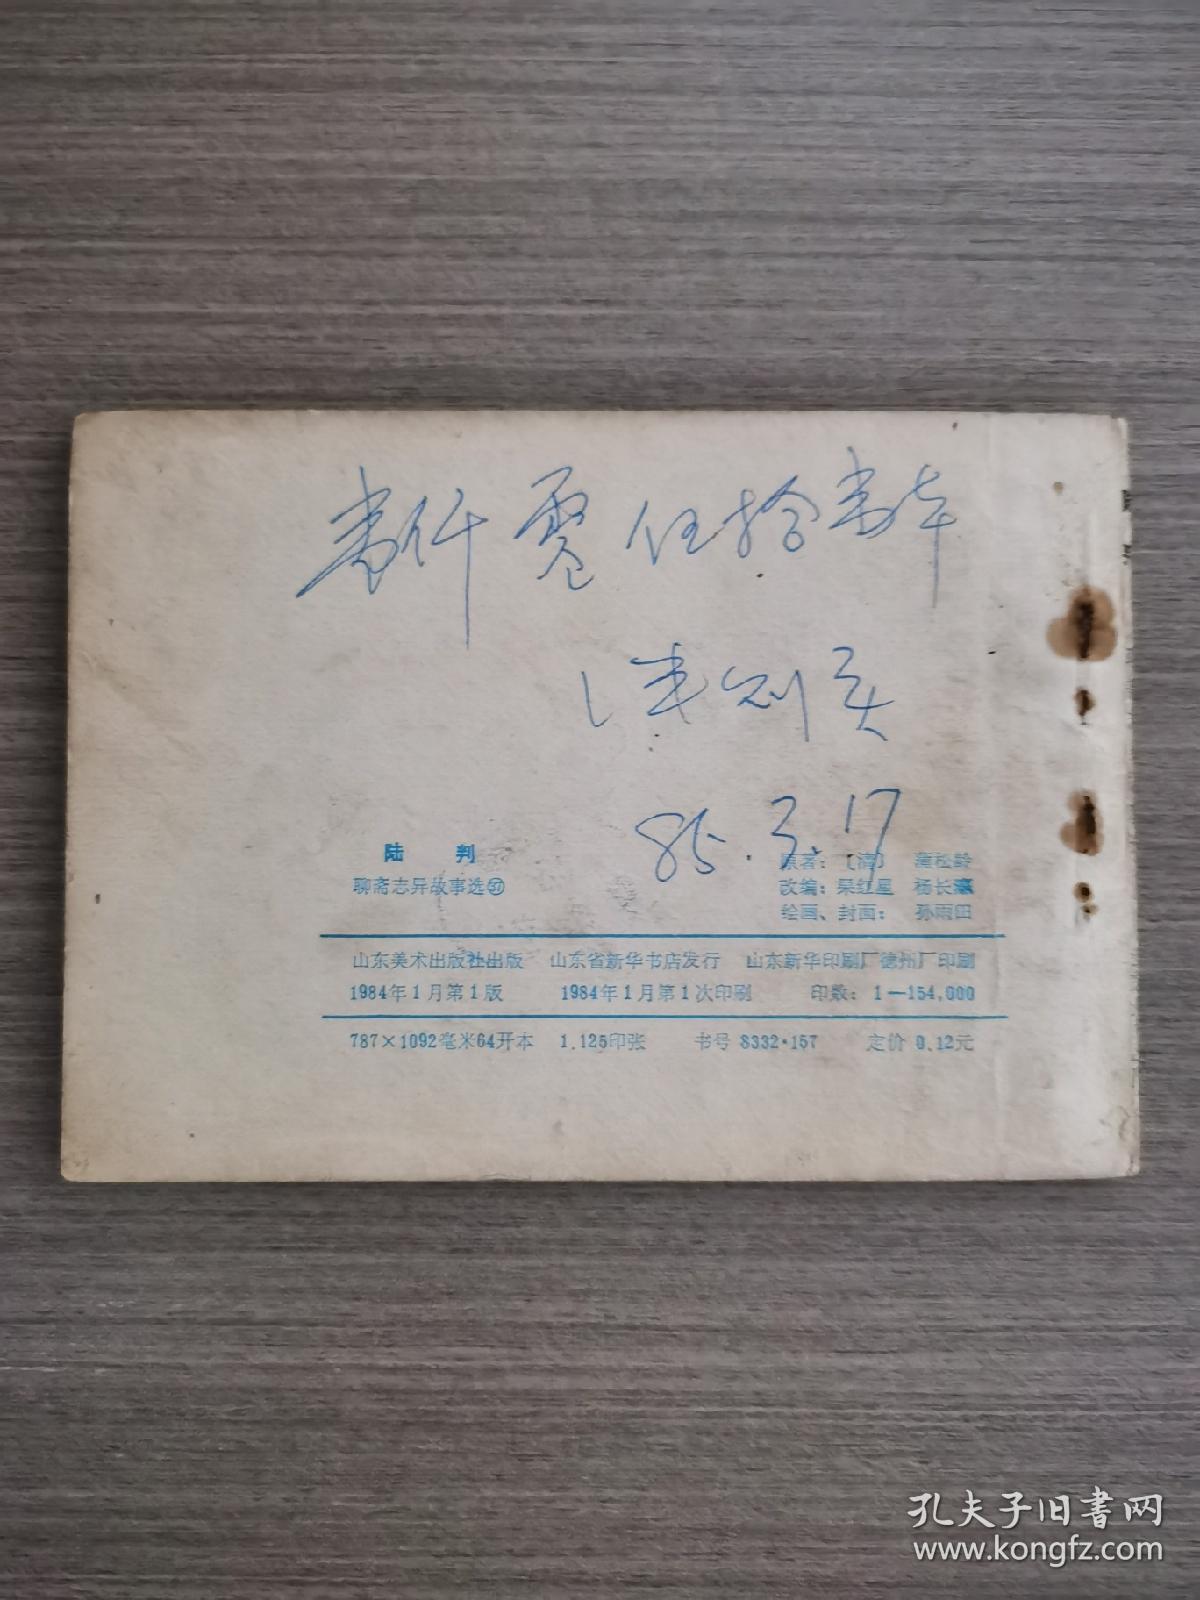 85.3.17
陆 判
聊斋志异故事选㊲
原著：〔清〕 蒲松龄
改编： 杨长
绘画、封面： 孙雨田
山东美术出版社出版 山东省新华书店发行 山东新华印刷厂德州厂印刷
1984年1月第1版 1984年1月第1次印刷 印数：1—154,000
787×1092毫米64开本 1.125印张 书号 8332·157 定价 0.12元
孔夫子旧书网
www.kongfz.com